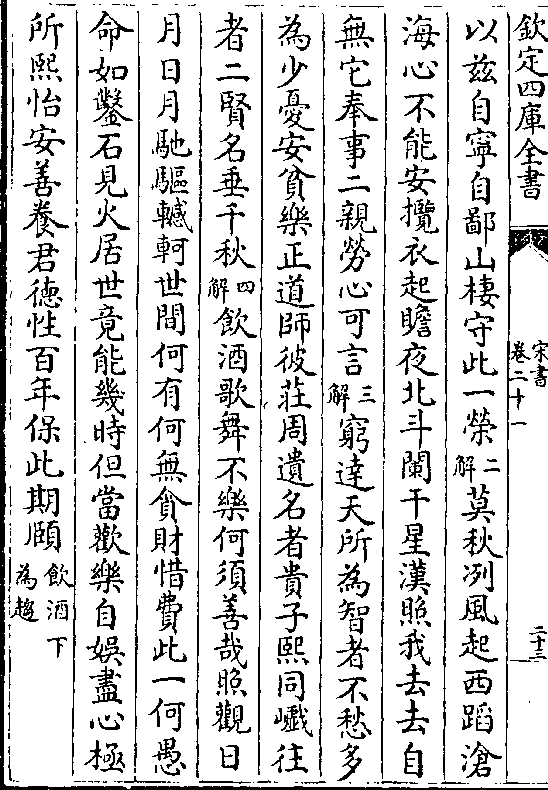 欽定四庫全書
宋書
卷二十一
二十三
以兹自寧自鄙山棲守此一榮二解莫秋冽風起西蹈滄
海心不能安攬衣起瞻夜北斗闌干星漢照我去去自
無它奉事二親勞心可言三解窮達天所為智者不愁多
為少憂安貧樂正道師彼莊周遺名者貴子熙同巇往
者二賢名垂千秋四解飲酒歌舞不樂何須善哉照觀日
月日月馳驅轗軻世間何有何無貪財惜費此一何愚
命如鑿石見火居世竟能幾時但當歡樂自娛盡心極
所熙怡安善養君德性百年保此期頤飲酒下為趨